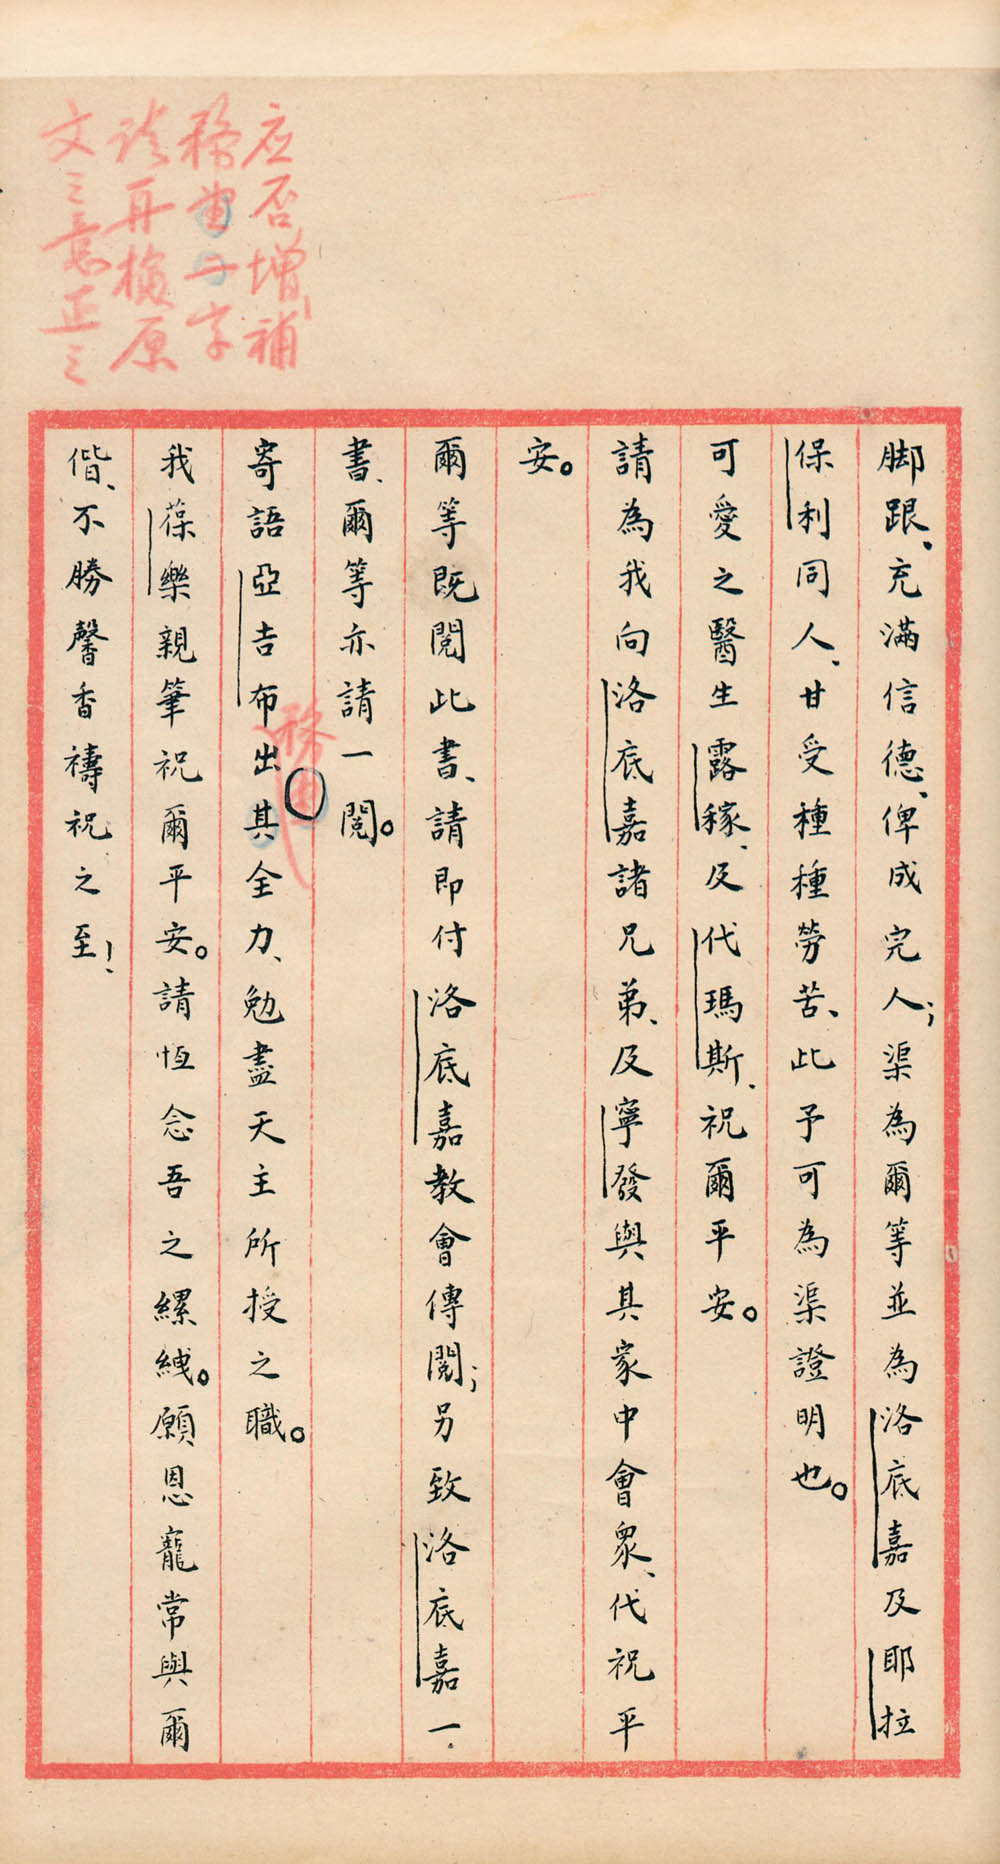 应否增補
務由二字
請再檢原
文之意正之
脚跟、充滿信德、俾成完人；渠為爾等並為洛底嘉及耶拉
保利同人、甘受種種勞苦、此予可為渠證明也。
可愛之醫生露稼、及代瑪斯、祝爾平安。
請為我向洛底嘉諸兄弟、及寧發與其家中會眾、代祝平
安。
爾等既閱此書、請即付洛底嘉教會傳閱；另致洛底嘉一
書、爾等亦請一閱。
寄語亞吉布出其全力、勉盡天主所授之職。
務由
我葆樂親筆祝爾平安。請恆念吾之縲絏。願恩寵常與爾
偕、不勝馨香禱祝之至！